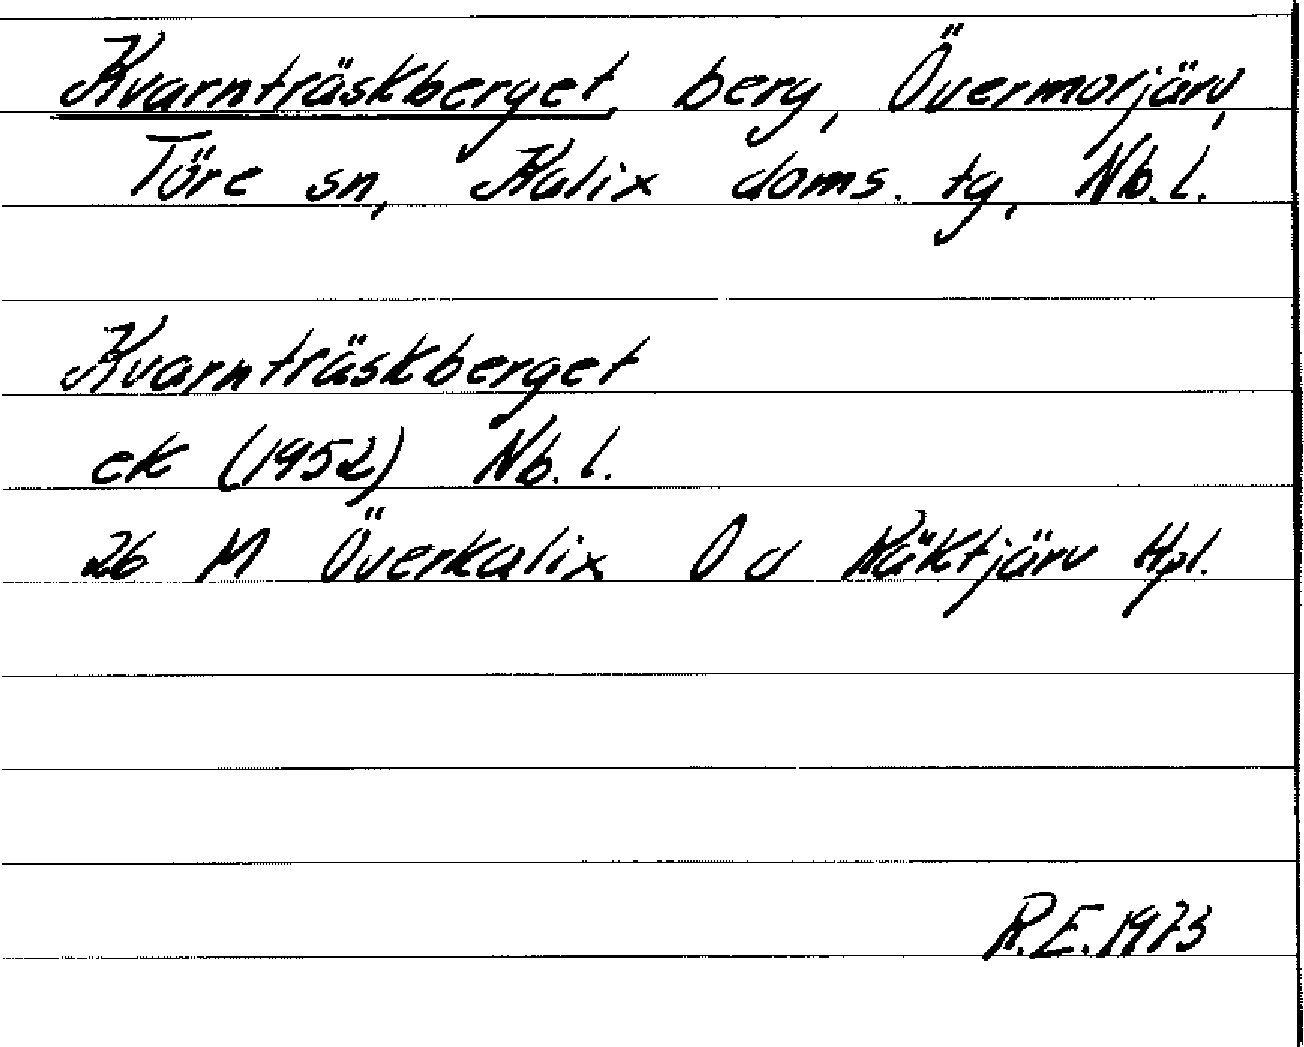 Kvarnträskberget, berg, Övermorjärv,
Töre sn, Kalix doms. tg, Nb.l.
Kvarnträskberget
ek (1952) Nb.l.
26 M Överkalix 0 d Räktjärv Hpl.
R.E.1973